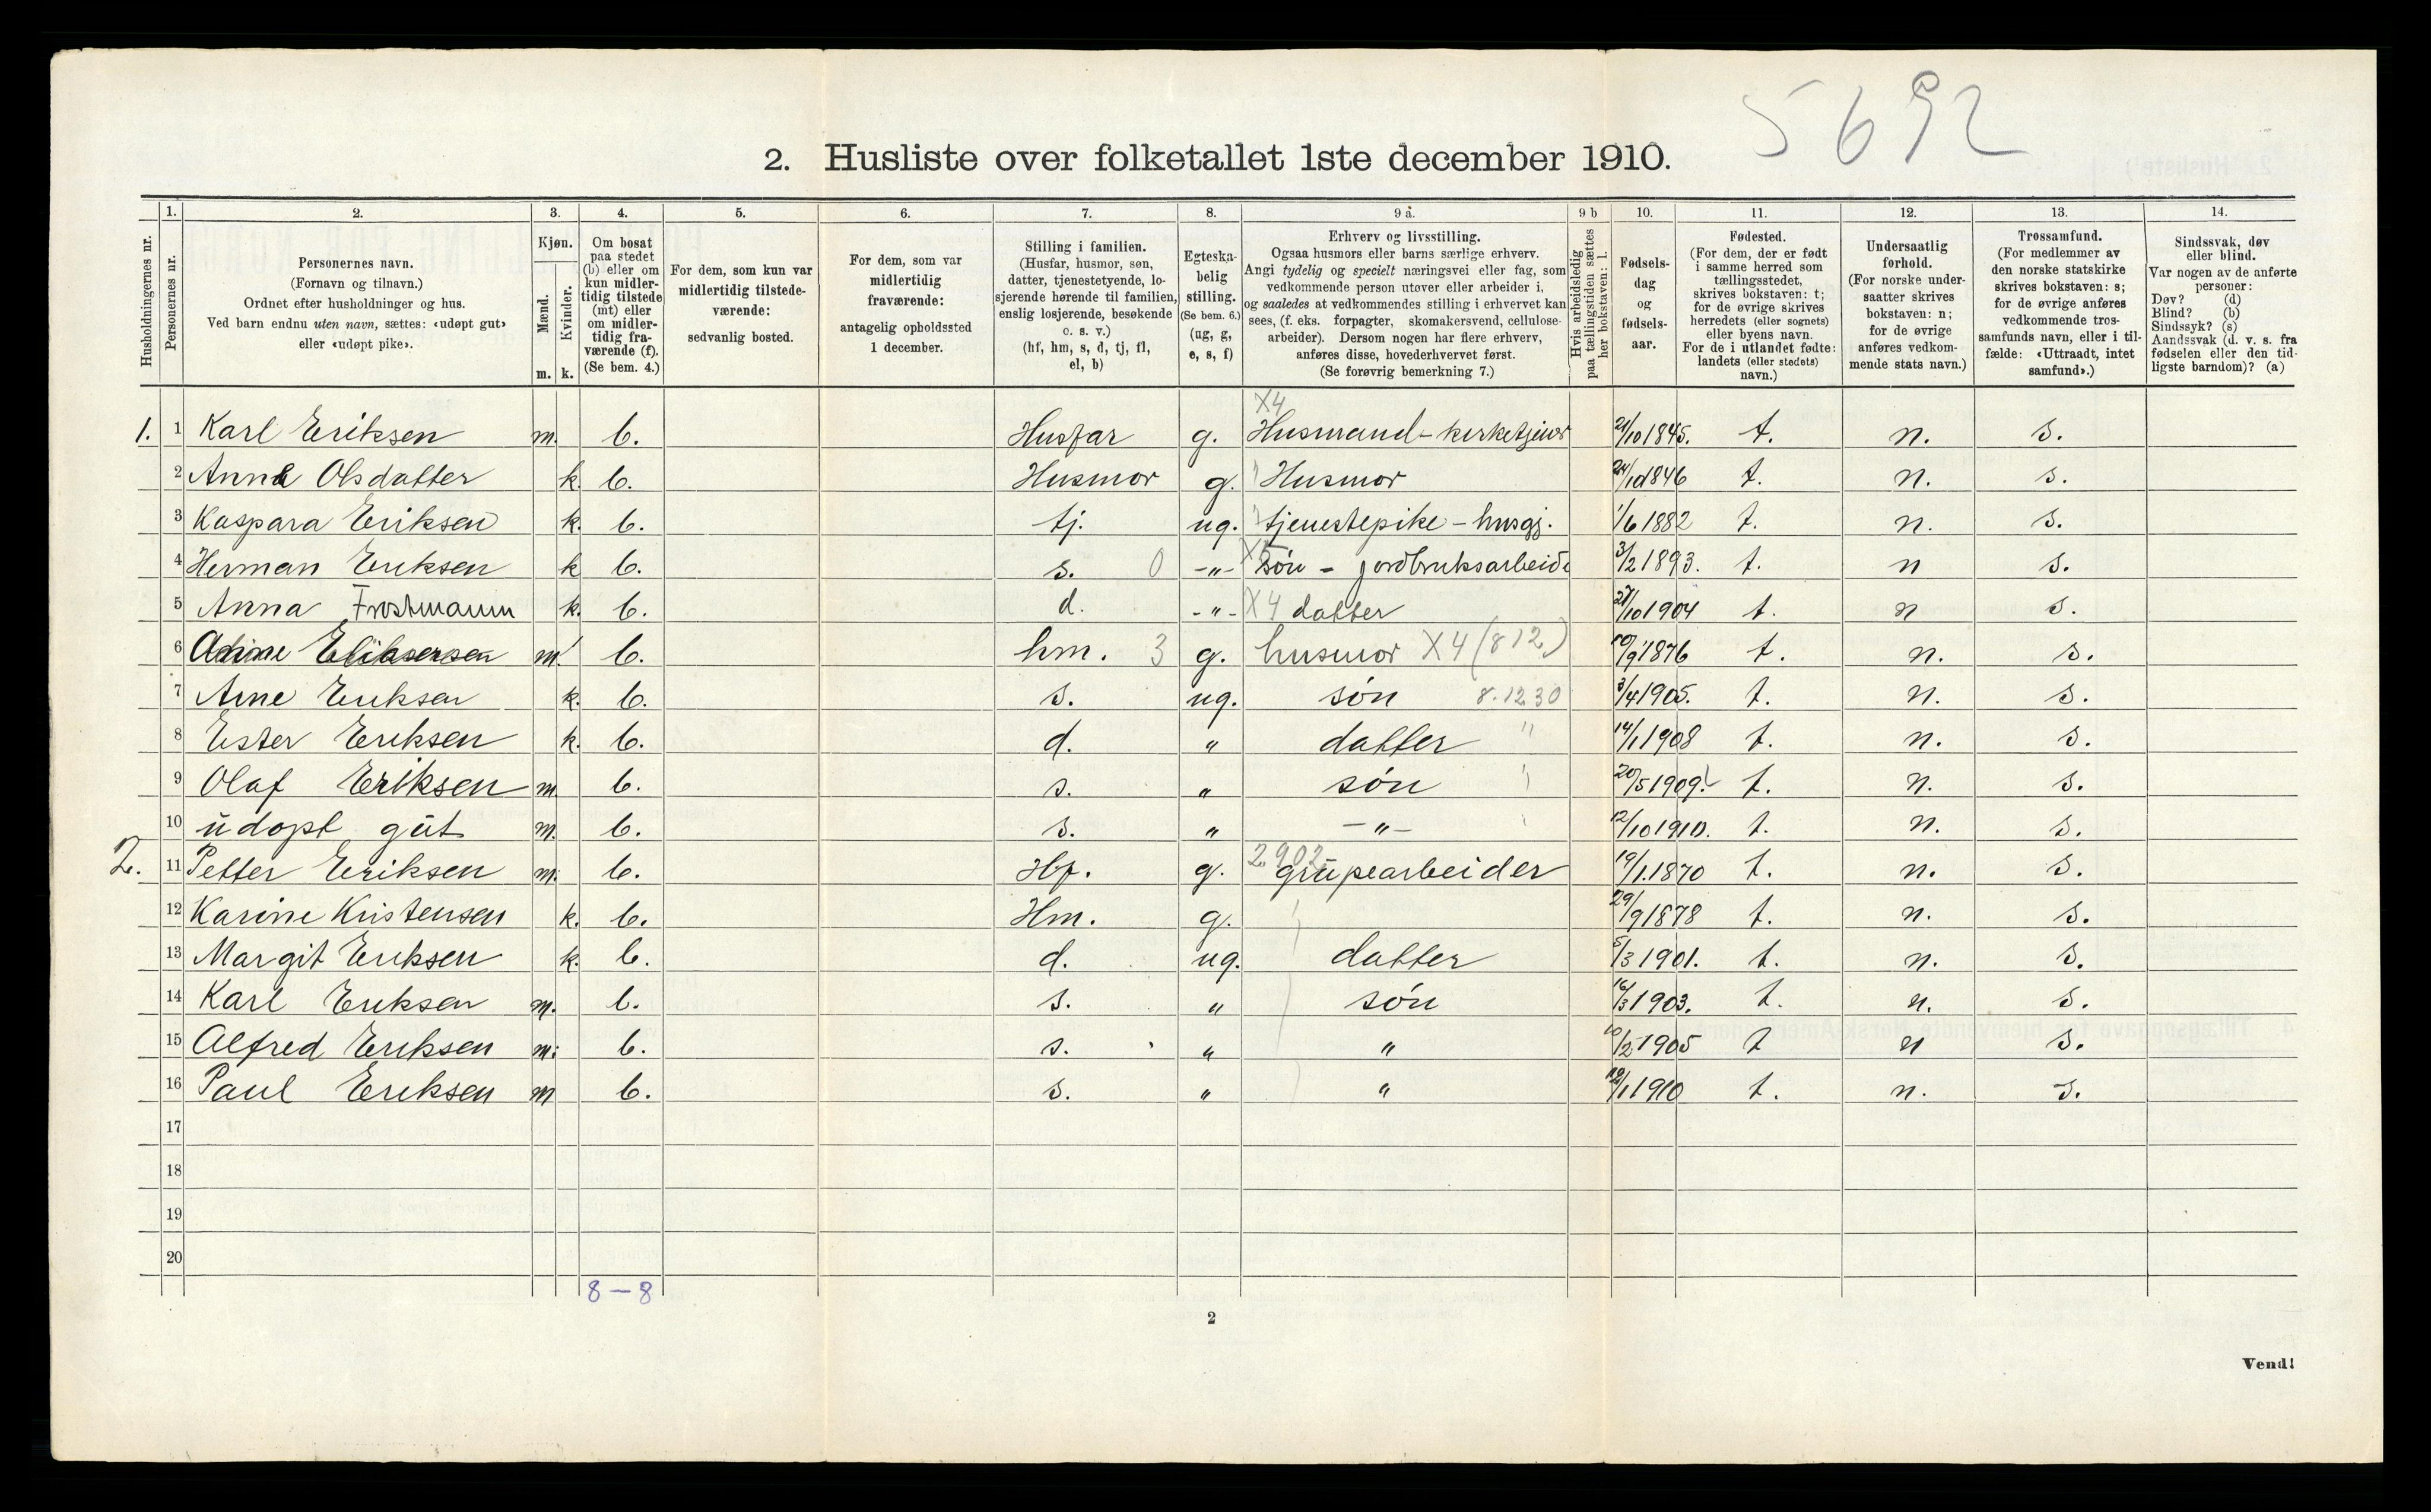 5692
2. Husliste over folketallet 1ste december 1910.
Husholdningernes nr.
1. Personernes nr.
2. Personernes navn.
(Fornavn og tilnavn.)
Ordnet efter husholdninger og hus.
Ved barn endnu uten navn, sættes: «udøpt gut»
eller «udøpt pike».
3. Kjøn.
Mænd. m.
Kvinder. k.
4. Om bosat
paa stedet
(b) eller om
kun midler-
tidig tilstede
(mt) eller
om midler-
tidig fra-
værende (f).
(Se bem. 4.)
5. For dem, som kun var
midlertidig tilstede-
værende:
sedvanlig bosted.
6. For dem, som var
midlertidig
fraværende:
antagelig opholdssted
1 december.
7. Stilling i familien.
(Husfar, husmor, søn,
datter, tjenestetyende, lo-
sjerende hørende til familien,
enslig losjerende, besøkende
o. s. v.)
(hf, hm, s, d, tj, fl,
el, b)
8. Egteska-
belig
stilling.
(Se bem. 6.)
(ug, g,
e, s, f)
9 a. Erhverv og livsstilling.
Ogsaa husmors eller barns særlige erhverv.
Angi tydelig og specielt næringsvei eller fag, som
vedkommende person utøver eller arbeider i,
og saaledes at vedkommendes stilling i erhvervet kan
sees, (f. eks. forpagter, skomakersvend, cellulose-
arbeider). Dersom nogen har flere erhverv,
anføres disse, hovederhvervet først.
(Se forøvrig bemerkning 7.)
9 b Hvis arbeidsledig
paa tællingstiden sættes
her bokstaven: l.
10. Fødsels-
dag
og
fødsels-
aar.
11. Fødested.
(For dem, der er født
i samme herred som
tællingsstedet,
skrives bokstaven: t;
for de øvrige skrives
herredets (eller sognets)
eller byens navn.
For de i utlandet fødte:
landets (eller stedets)
navn.)
12. Undersaatlig
forhold.
(For norske under-
saatter skrives
bokstaven: n;
for de øvrige
anføres vedkom-
mende stats navn.)
13. Trossamfund.
(For medlemmer av
den norske statskirke
skrives bokstaven: s;
for de øvrige anføres
vedkommende tros-
samfunds navn, eller i til-
fælde: «Uttraadt, intet
samfund».)
14. Sindssvak, døv
eller blind.
Var nogen av de anførte
personer:
Døv? (d)
Blind? (b)
Sindssyk? (s)
Aandssvak (d. v. s. fra
fødselen eller den tid-
ligste barndom)? (a)
X4
1. 1 Karl Eriksen m. b. Husfar g. Husmand - kirketjener 21/10 1845. t. n. s.
2 Anna Olsdatter k. b. Husmor g. Husmor 24/10 1846 t. n. s.
3 Kaspara Eriksen k. b. tj. ug. tjenestepike - husgj. 1/6 1882 t. n. s.
4 Herman Eriksen k b. s. 0 -"- Søn - jordbruksarbeide 3/2 1893. t. n s.
5 Anna Frostmann k. b. d. -"- X4 datter 27/10 1904 t. n s.
6 m. b. hm. 3 g. husmor X4 (812) 10/9 1876 t. n. s.
7 Arne Eriksen k. b. s. ug. søn 8.12.30 3/4 1905. t. n. s.
8 Ester Eriksen k. b. d. " datter " 14/1 1908 t. n. s.
9 Olaf Eriksen m. b. s. " søn 20/5 1909. t. n. s.
10 udøpt gut m. b. s. " -"- 12/10 1910. t. n. s.
2.902
2. 11 Petter Eriksen m. b. Hf. g. grubearbeider 19/1.1870 t. n. s.
12 Karine Kristensen k. b. Hm. g. 29/9 1878 t. n. s.
13 Margit Eriksen k. b. d. ug. datter 5/3 1901. t. n. s.
14 Karl Eriksen m. b. s. " søn 16/3 1903. t. n. s.
15 Alfred Eriksen m. b. s. " " 10/2 1905 t n s.
16 Paul Eriksen m b. s. " " /1 1910 t. n. s.
17
18
19
20
8 - 8
2
Vend!